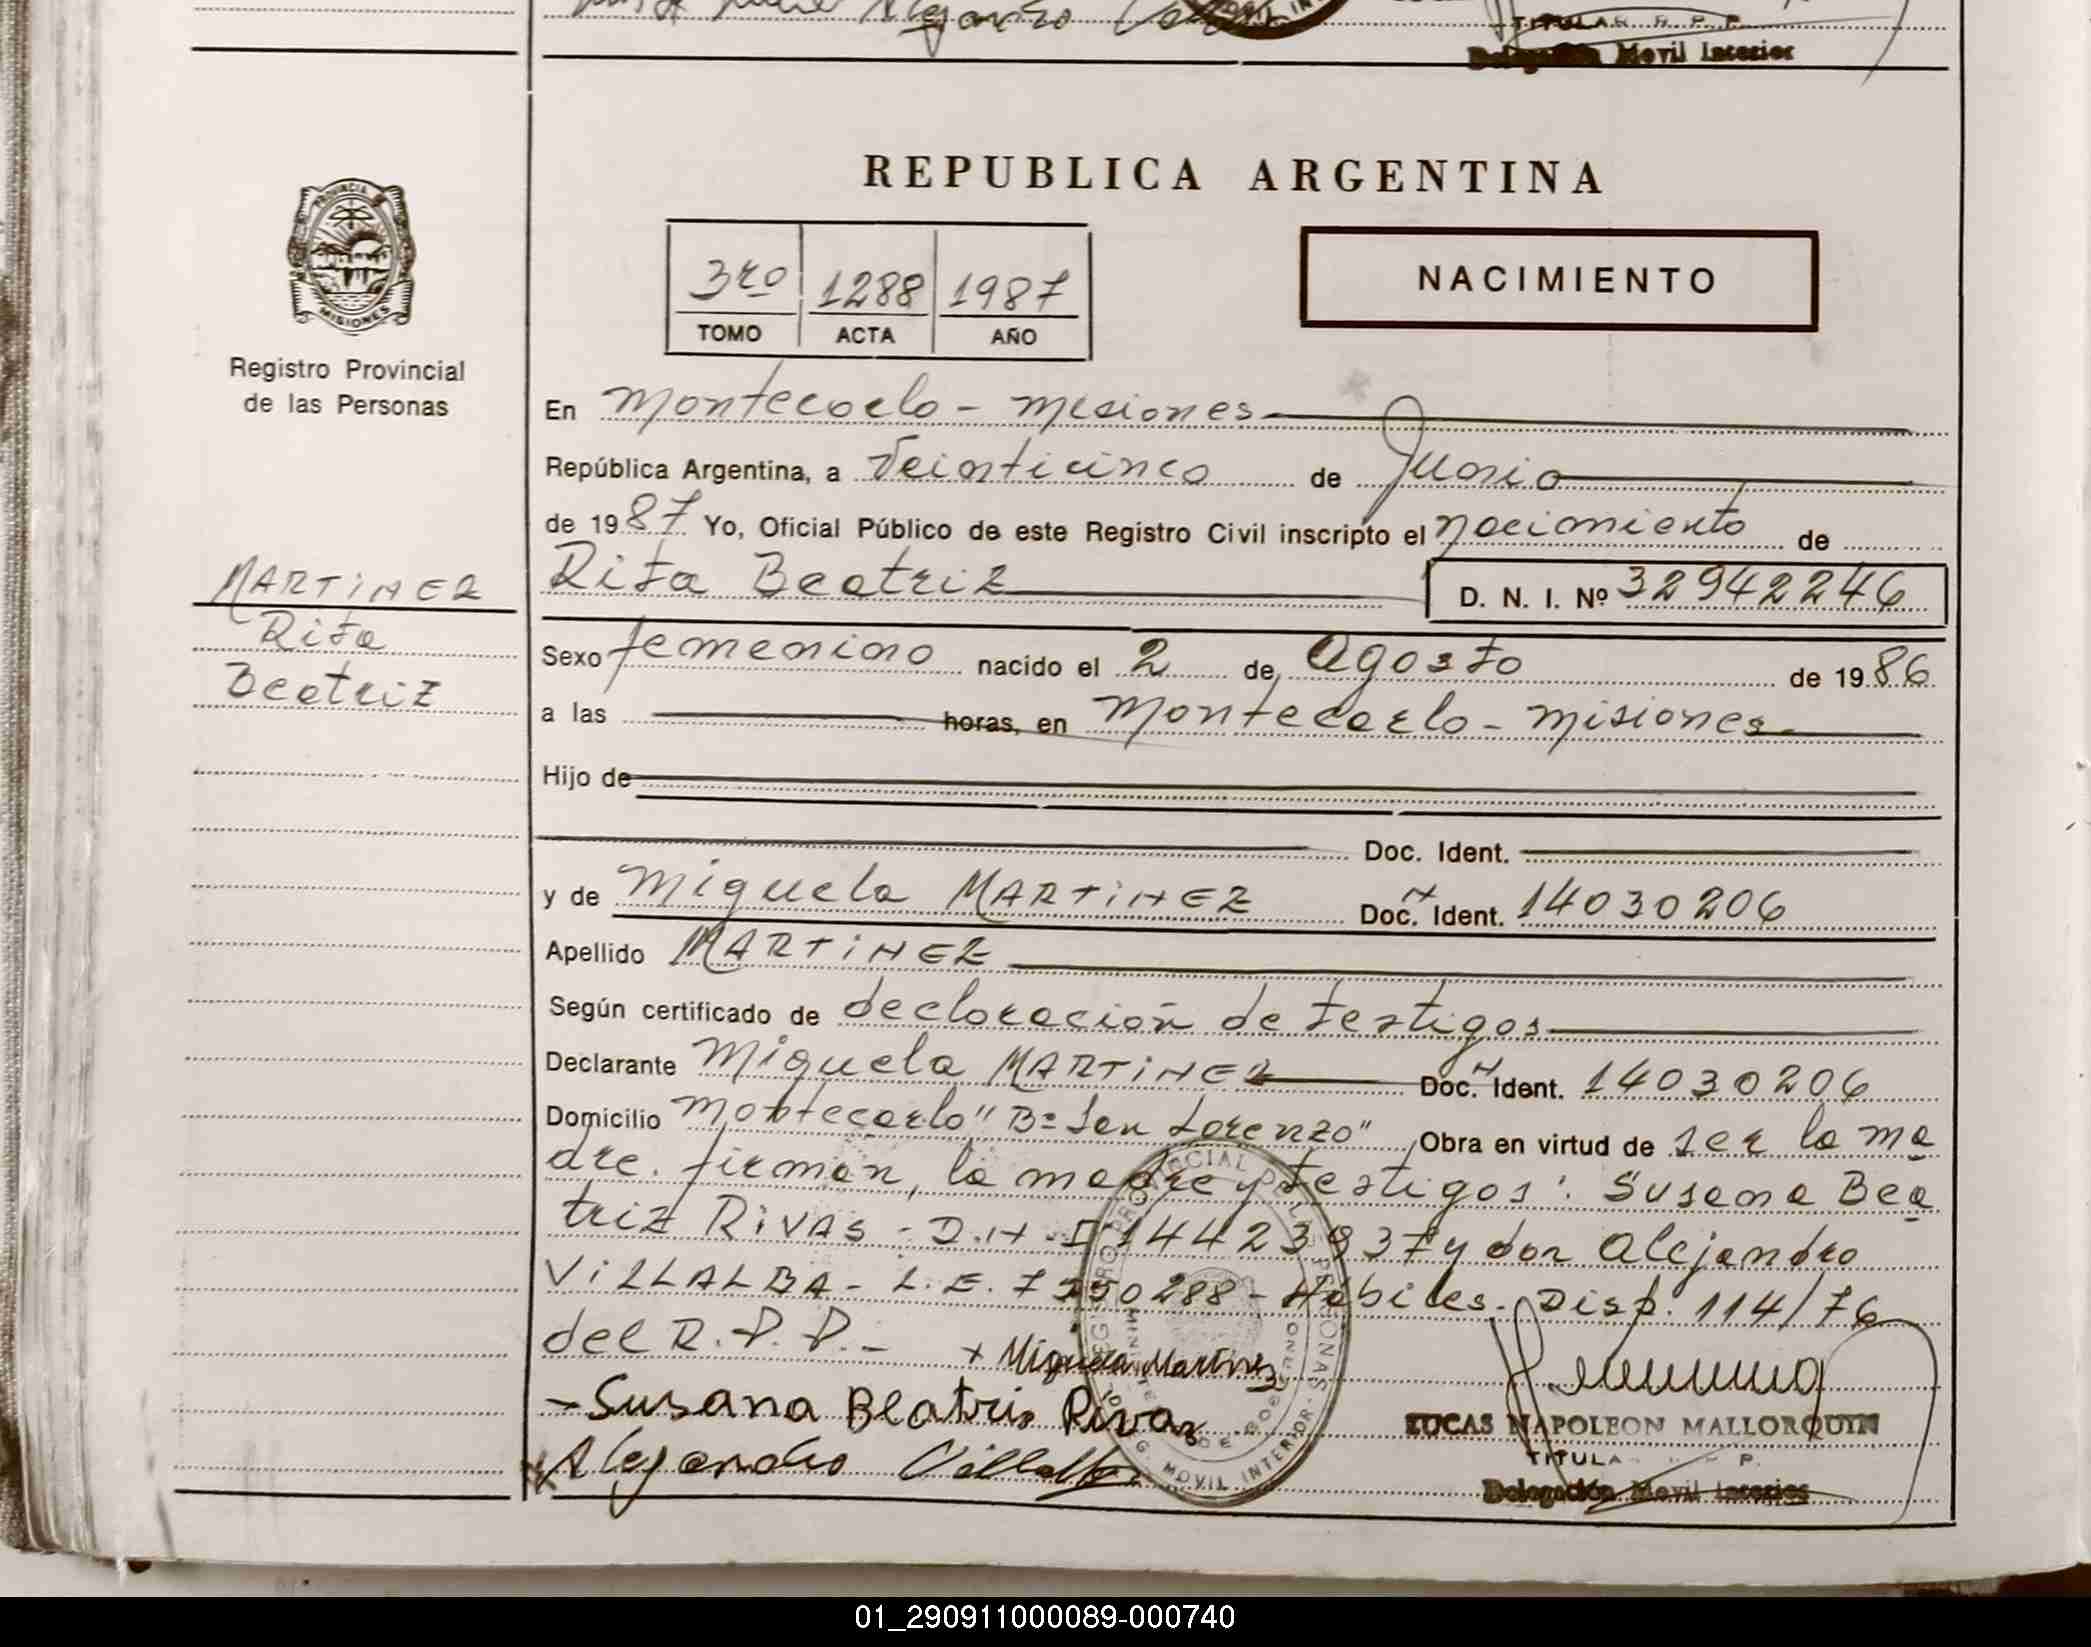 TITULAR R. P. P.
Delegación Movil Interior
REPUBLICA ARGENTINA
PROVINCIA
MISIONES
Registro Provincial
de las Personas
3ro 1288 1987
TOMO ACTA AÑO
NACIMIENTO
En Montecarlo - Misiones
República Argentina, a Veinticinco de Junio
de 1987 Yo, Oficial Público de este Registro Civil inscripto el nacimiento de
MARTINEZ
Rita
Beatriz
Rita Beatriz D. N. I. Nº 32942246
Sexo femenino nacido el 2 de Agosto de 1986
a las horas, en Montecarlo - Misiones
Hijo de
Doc. Ident.
y de Miguela MARTINEZ Doc. Ident. 14030206
Apellido MARTINEZ
Según certificado de declaración de testigos
Declarante Miguela MARTINEZ Doc. Ident. 14030206
Domicilio Montecarlo "Bº San Lorenzo" Obra en virtud de ser la ma
dre. firman, la madre y testigos: Susana Bea
triz RIVAS - D.N.I 14423937 y don Alejandro
VILLALBA - L.E. 7550288 - Hábiles. Disp. 114/76
del R. P. P. -
x Miguela Martinez
- Susana Beatris Rivas
Alejandro Villalba
LUCAS NAPOLEON MALLORQUIN
TITULA P.
Delegación Movil Interior
MOVIL INTERIOR
01_290911000089-000740